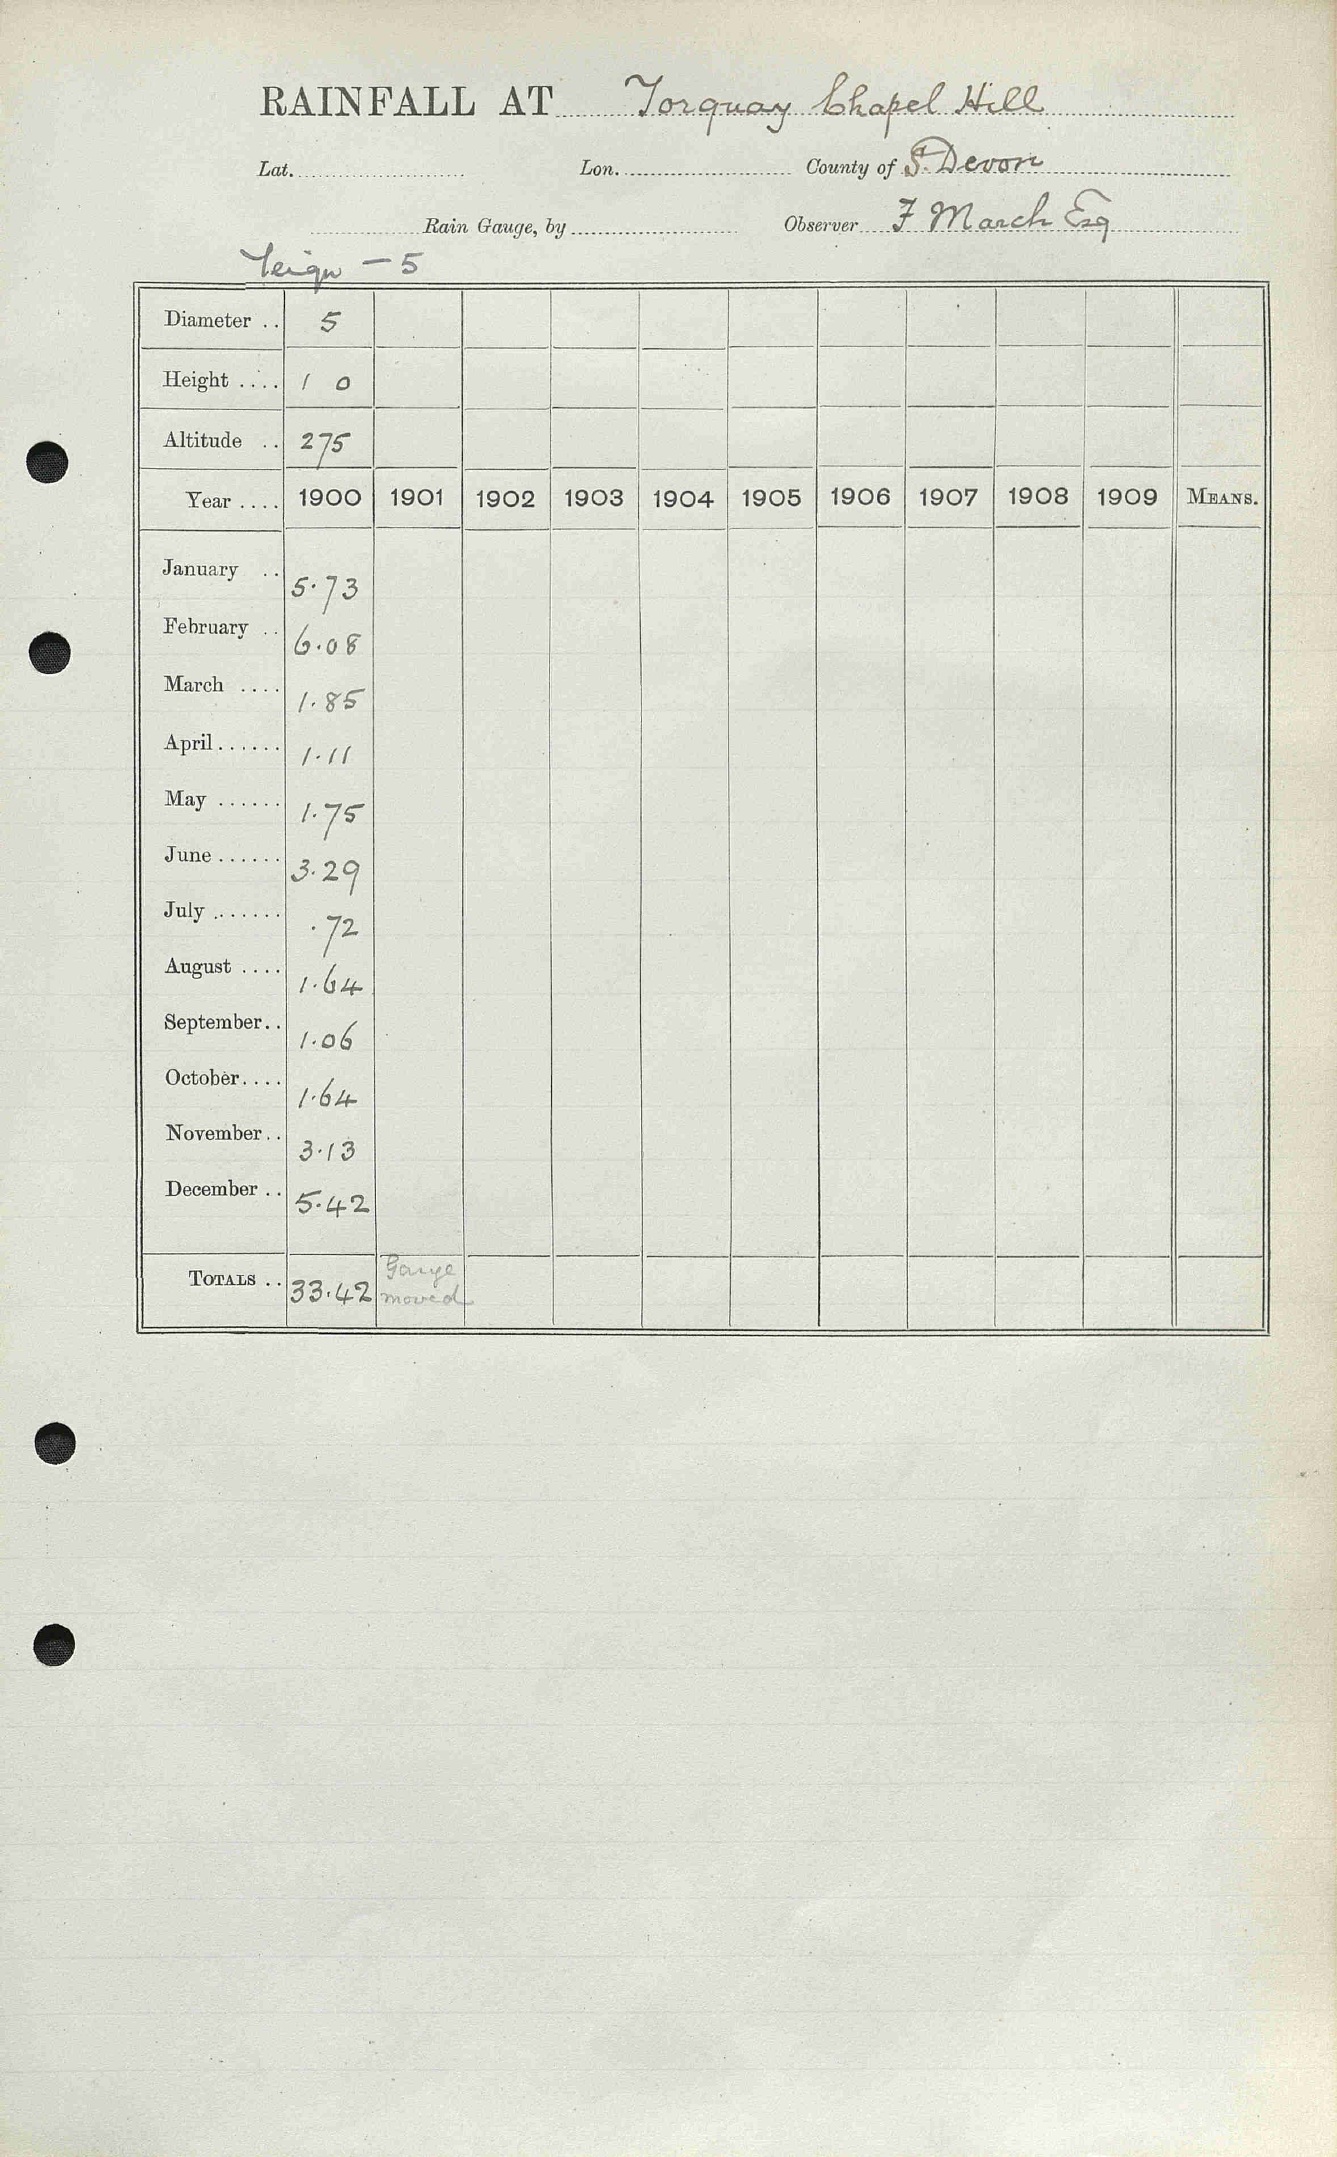 RAINFALL AT Torquay Chapel Hill
Lat. Lon. County of S. Devon
Rain Gauge, by Observer F March Esq
Teign - 5
Diameter .. 5
Height .... 1 0
Altitude .. 275
Year .... 1900 1901 1902 1903 1904 1905 1906 1907 1908 1909 MEANS.
January .. 5.73
February .. 6.08
March .... 1.85
April ...... 1.11
May ...... 1.75
June ...... 3.29
July ...... .72
August .... 1.64
September.. 1.06
October.... 1.64
November.. 3.13
December .. 5.42
TOTALS .. 33.42 Gauge
moved